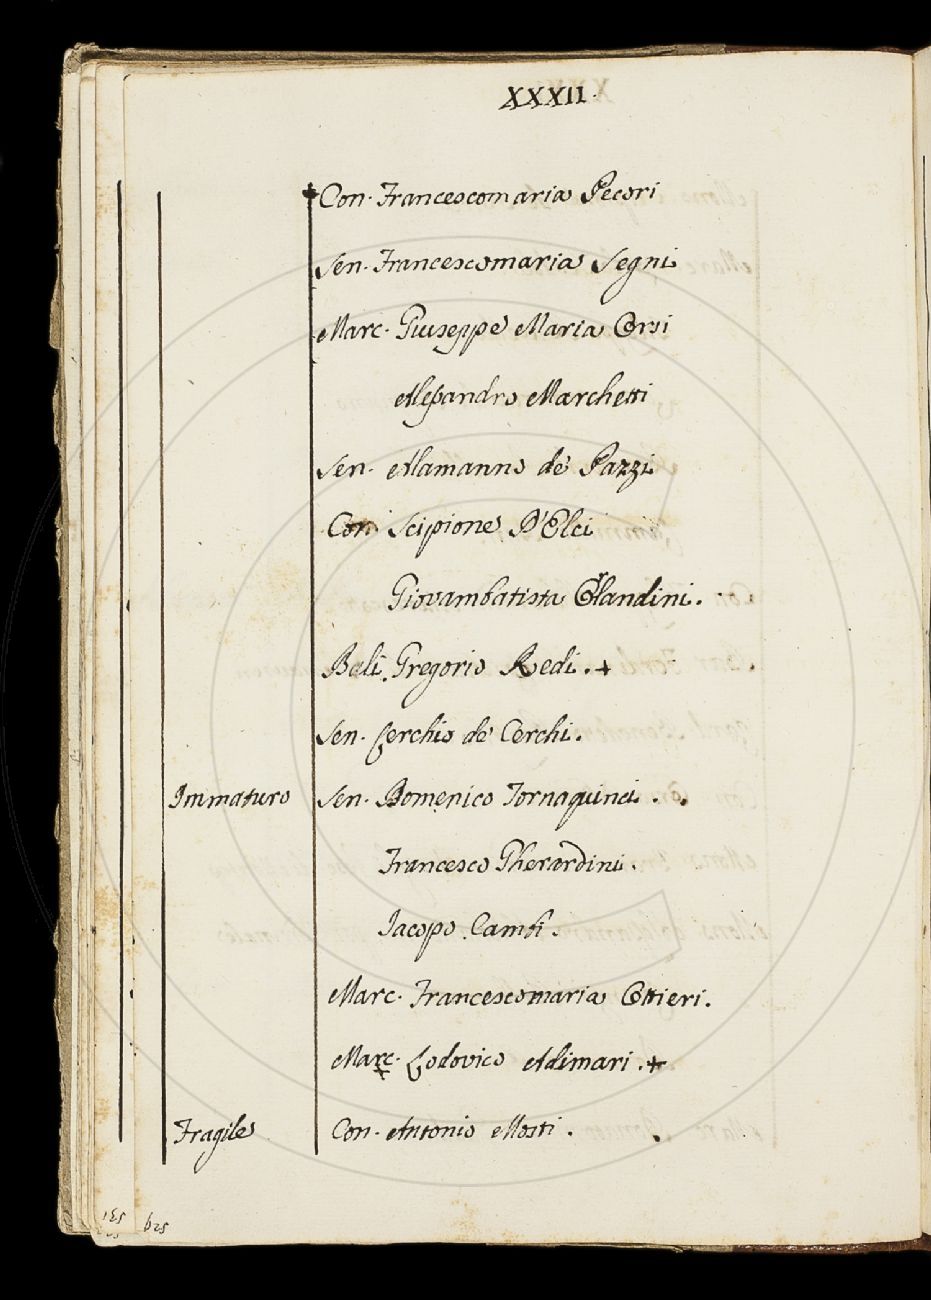 XXXII.
+Con. Francescomaria Pecori
Sen. Francescomaria Segni
Marc. Giuseppe Maria Corsi
Alessandro Marchetti
Sen. Alamanno de' Pazzi
Con Scipione D'Elci
Giovambatista Orlandini.
Bali. Gregorio Redi. +
Sen. Cerchio de Cerchi.
Immaturo Sen. Domenico Tornaquinci.
Francesco Gherardini.
Iacopo Cambi.
Marc. Francescomaria Ottieri.
Marc. Lodovico Adimari. +
Fragile Con. Antonio Mosti.
531 529